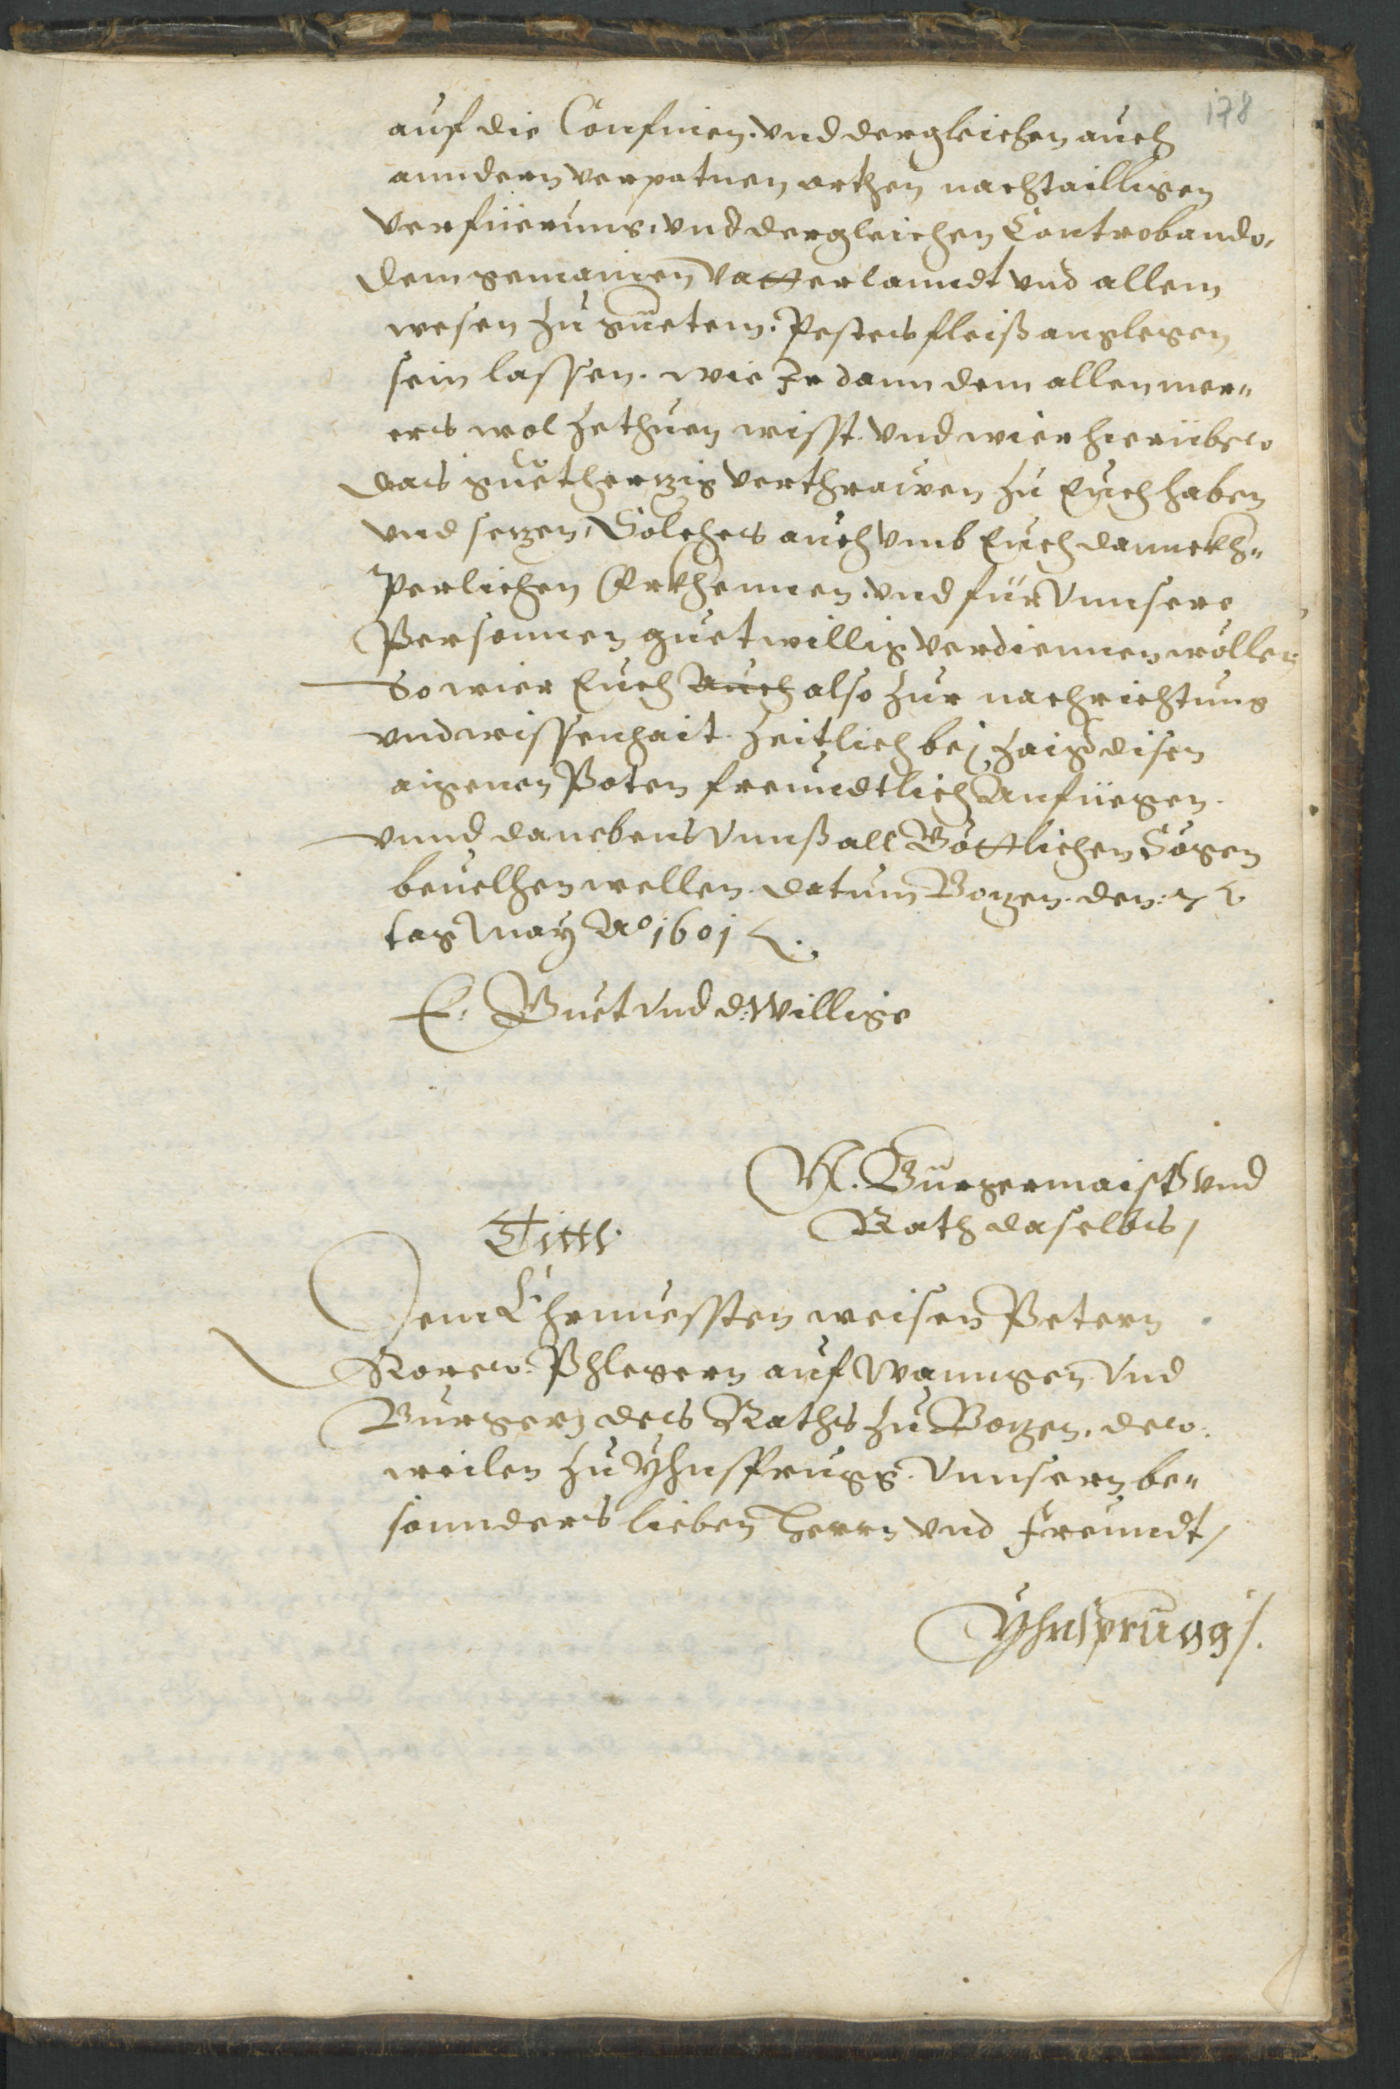 178
auf die Confinen. vnd dergleichen auch
anndern verpotnen orthen nachtailligen
Verfüerung, vnd dergleichen Contrabando,
dem gemainen Vatterlanndt vnd allem
wesen zu guetem. Pestes fleiß anglegen
sein lassen. wie Ir dann dem allen mer„
ers wol zethuen wisst. vnd wier hierüber
das guethertzig verthrawen zu Euch haben
vnd setzen, Solches auch vmb Euch dannckh„
perlichen Erkhennen. vnd für Vnnsere
Personnen guetwillig verdiennen wöllen
So wier Euch auch also zur nachrichtung
vnd wissenhait. zeitlich bej zaiger disen
aignen Poten freundtlich Anfüegen.
vnnd danebens Vnnß all Göttlichen Sögen
beuelhen wellen. Datum Botzen. den: 7
tag May Ao 1601
E. Guet vnd d: Willige
N. Burgermaister vnd
Rath daselbs,
Tittl.
Dem Ehrnuessten weisen Petern
Pflegern auf Wanngen. Vnd
Burgern des Raths zu Botzen, der„
weilen zu Yhnsprugg. Vnnsern be„
sonnders lieben Herrn vnd Freundt,
Yhnsprugg